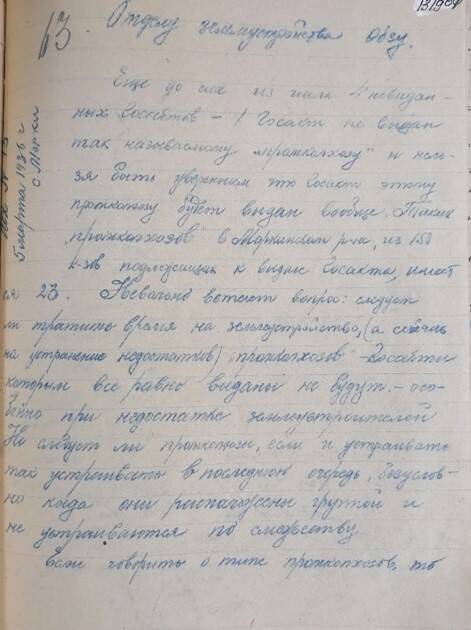 13/904
63.
Отделу землеустройства Обзу.
5 марта 1936 г
с Морки
Еще до сих из числа 4 невыдан-
ных Госактов – 1 Госакт не выдан
так называемому "промколхозу" и нель-
зя быть уверенным что Госакт этому
промколхозу будет выдан вообще. Таких
"промколхозов" в Моркинском р-не, из 150
к-зов подлежащих к выдаче Госакта, имеет
ся 23. Невольно встает вопрос: следует
ли тратить время на землеустройство, (а сейчас
на устранение недостатков) "промколхозов" Госакты
которым все равно выданы не будут. – осо-
бенно при недостатке землеустроителей
Не следует ли промколхозы, если и устраивать
так устраивать в последнюю очередь, безуслов-
но когда они расположены группой и
не устраиваются по смежеству.
Если говорить о типе промколхозов, то